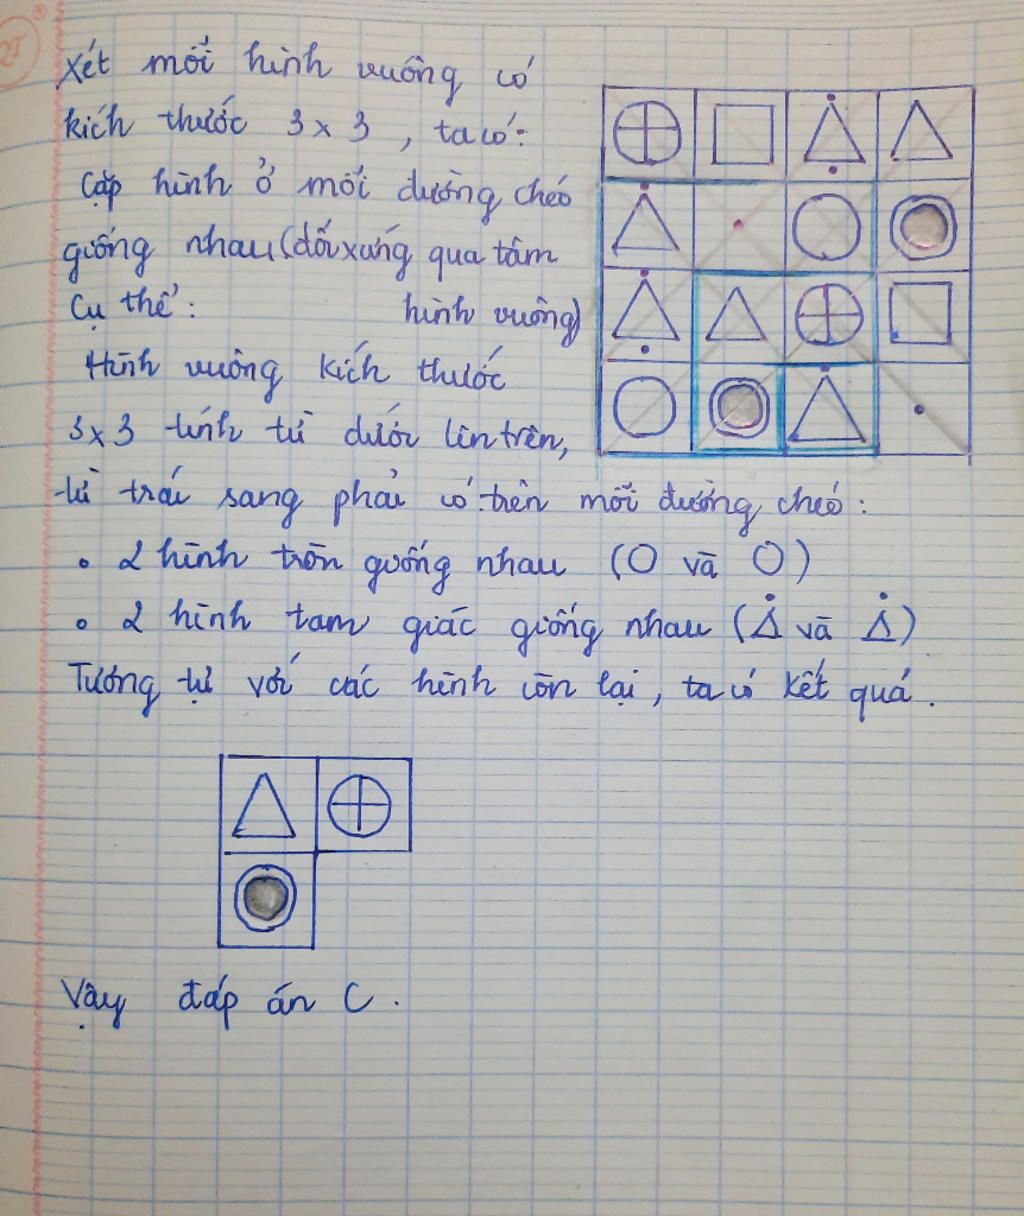 Xét mỗi hình vuông có
kích thước 3 x 3 , ta có:
Cặp hình ở mỗi đường chéo
giống nhau (đối xứng qua tâm
hình vuông)
Cụ thể :
Hình vuông kích thước
3x3 tính từ dưới lên trên,
từ trái sang phải có trên mỗi đường chéo :
• 2 hình tròn giống nhau (O và O)
• 2 hình tam giác giống nhau (∆̇ và ∆̇)
Tương tự với các hình còn lại, ta có kết quả.
Vậy đáp án C .